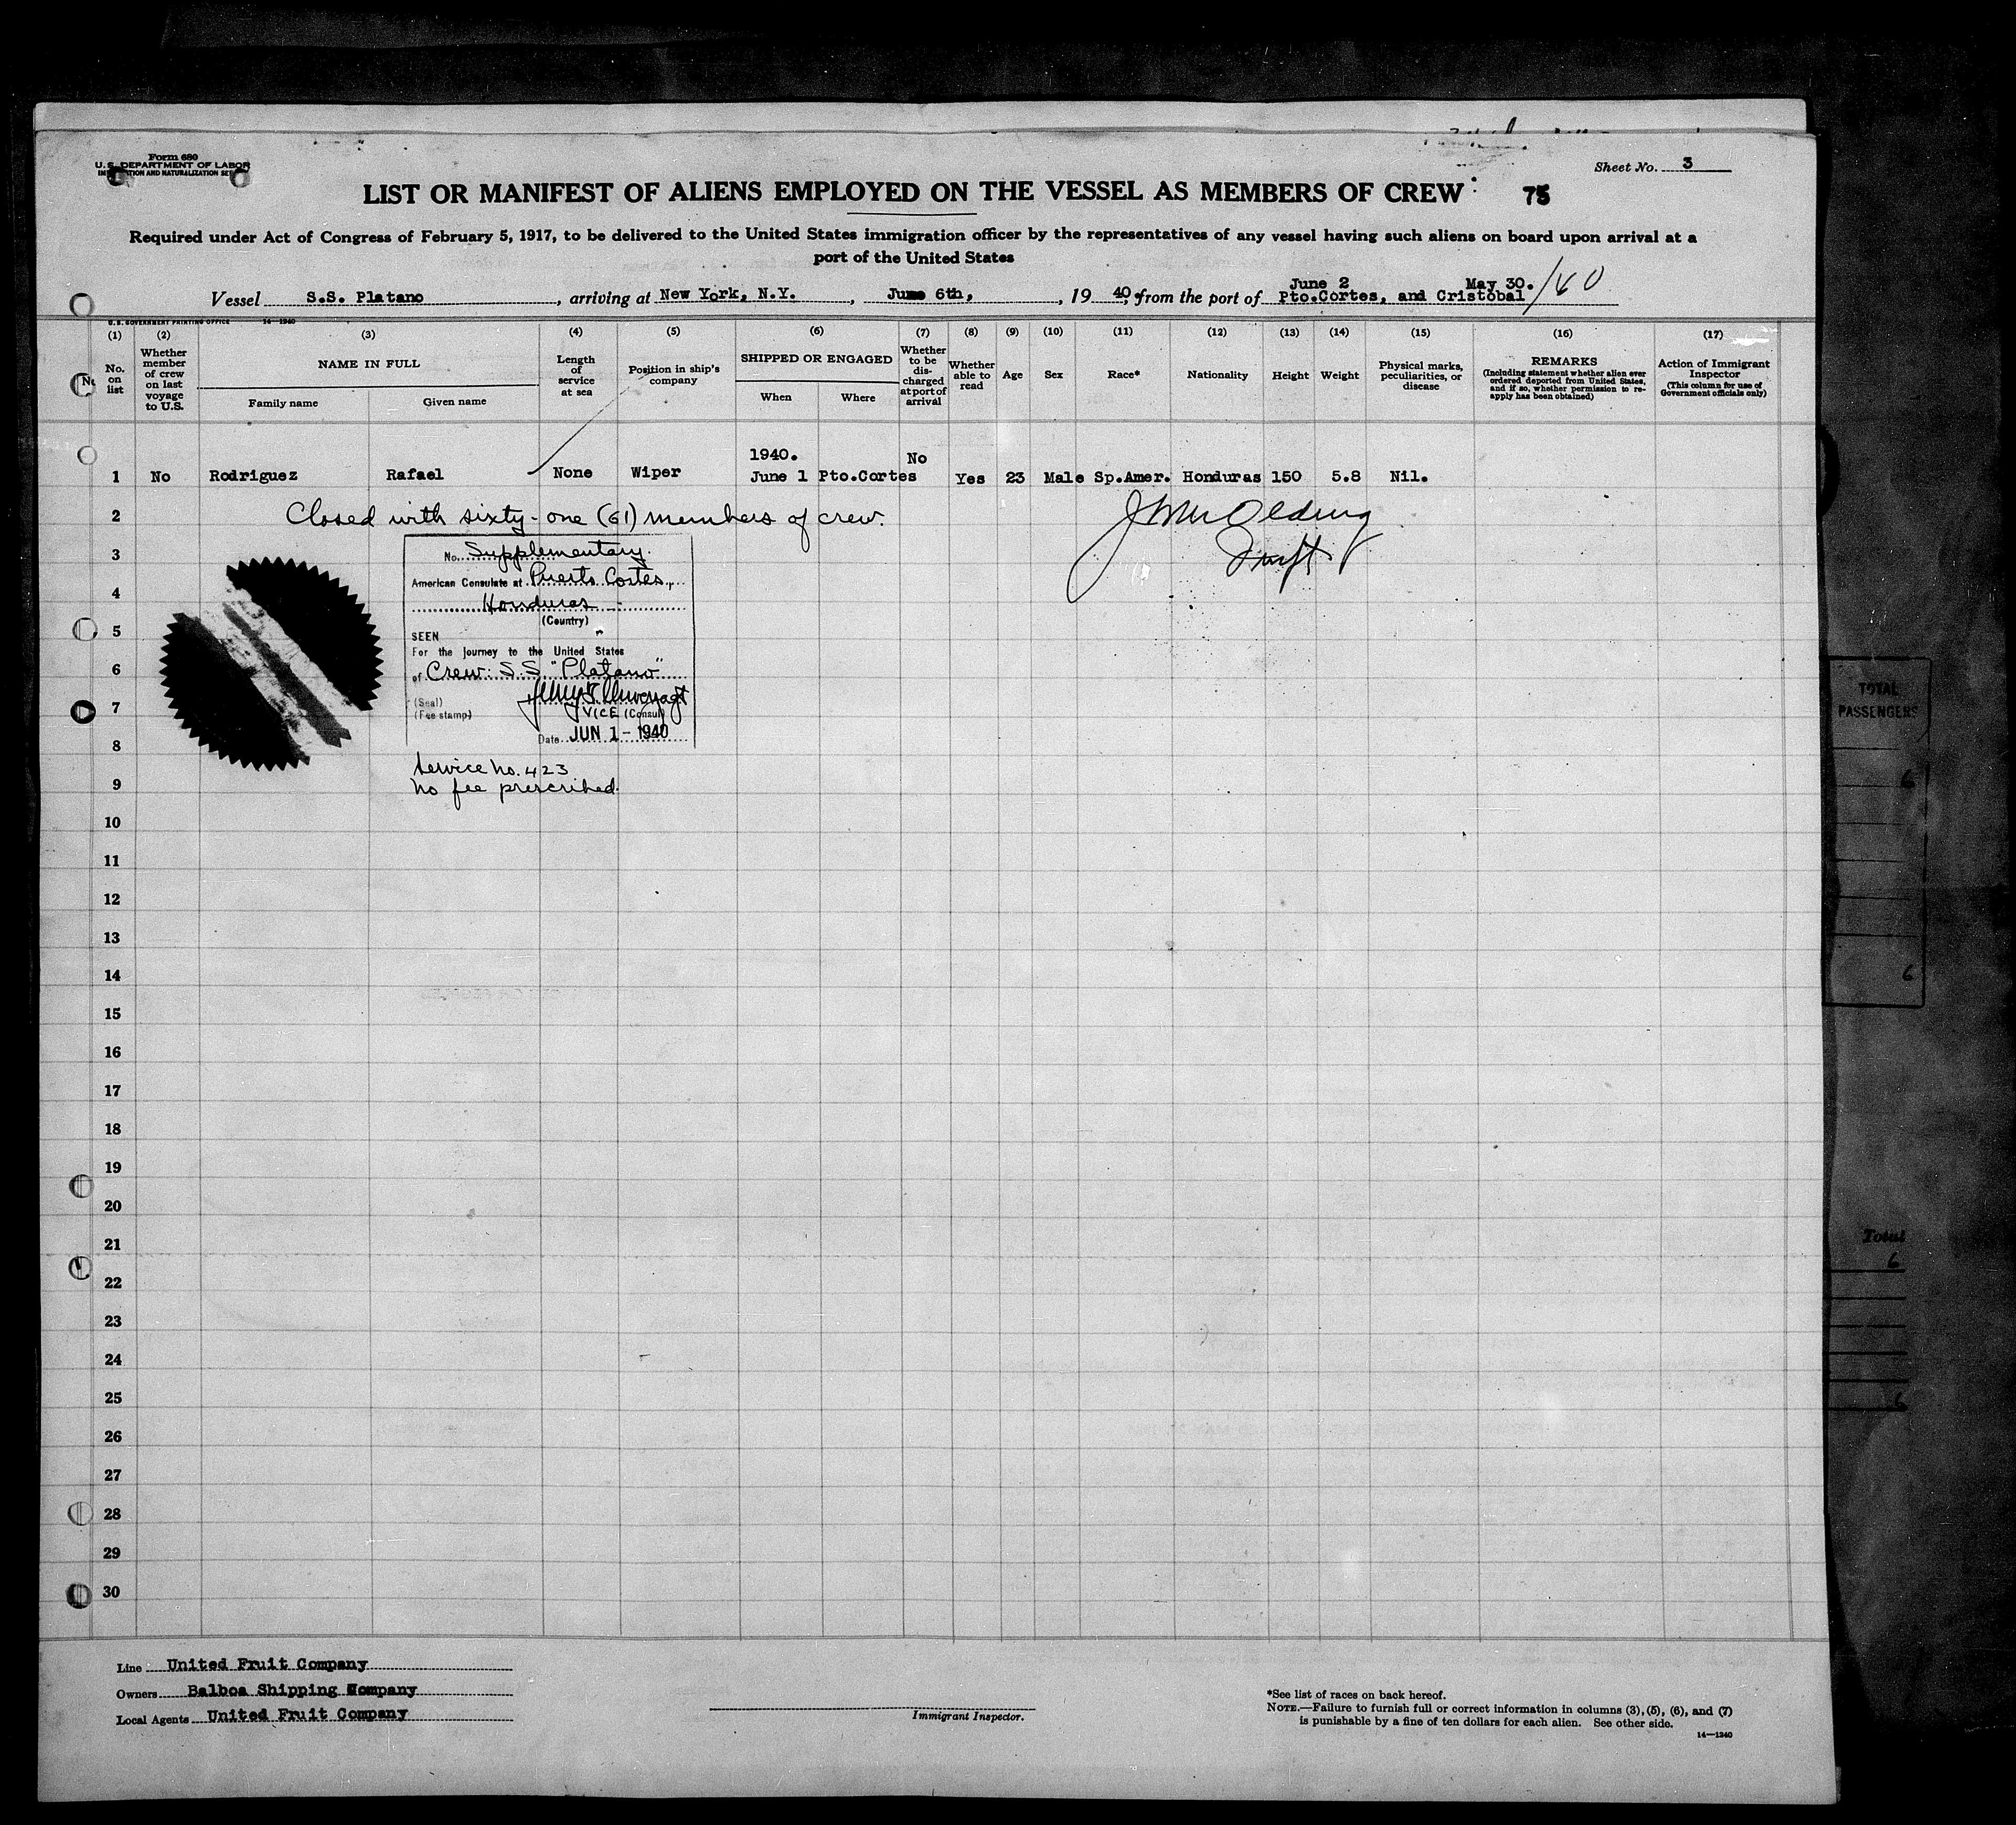 Form 680
U. S. DEPARTMENT OF LABOR
Sheet No. 3
LIST OR MANIFEST OF ALIENS EMPLOYED ON THE VESSEL AS MEMBERS OF CREW
Required under Act of Congress of February 5, 1917, to be delivered to the United States immigration officer by the representatives of any vessel having such aliens on board upon arrival at a
port of the United States
June 2 May 30.
Vessel S.S. Platano, arriving at New York, N.Y., June 6th, , 1940, from the port of Pto.Cortes, and Cristobal
U. S. GOVERNMENT PRINTING OFFICE 14—1240
(1) (2) (3) (4) (5) (6) (7) (8) (9) (10) (11) (12) (13) (14) (15) (16) (17)
No. on list
Whether member of crew on last voyage to U.S.
NAME IN FULL
Family name Given name
Length of service at sea
Position in ship's company
SHIPPED OR ENGAGED
When Where
Whether to be discharged at port of arrival
Whether able to read
Age
Sex
Race*
Nationality
Height
Weight
Physical marks, peculiarities, or disease
REMARKS
(Including statement whether alien ever ordered deported from United States, and if so, whether permission to reapply has been obtained)
Action of Immigrant Inspector
(This column for use of Government officials only)
1940. No
1 No Rodriguez Rafael None Wiper June 1 Pto.Cortes Yes 23 Male Sp.Amer. Honduras 150 5.8 Nil.
2 Closed with sixty-one (61) members of crew.
No. Supplementary.
3
American Consulate at Puerto Cortes,
4
Honduras
(Country)
5
SEEN
For the journey to the United States
6
of Crew: S.S. "Platano"
7
(Seal)
(Fee stamp)
VICE (Consul)
8
Date JUN 1 - 1940
Service No. 423
9
No fee prescribed.
10
11
12
13
14
15
16
17
18
19
20
21
22
23
24
25
26
27
28
29
30
Line United Fruit Company
Owners Balboa Shipping Company
Local Agents United Fruit Company
Immigrant Inspector.
*See list of races on back hereof.
NOTE.—Failure to furnish full or correct information in columns (3), (5), (6), and (7)
is punishable by a fine of ten dollars for each alien. See other side.
14—1240
TOTAL
PASSENGERS
6
6
Total
6
6